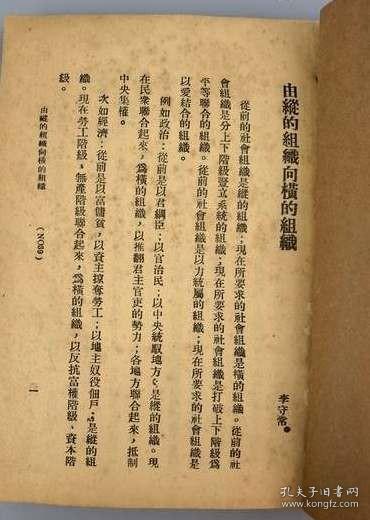 由縱的組織向橫的組織
李守常
從前的社會組織是縱的組織;現在所要求的社會組織是橫的組織。從前的社
會組織是分上下階級豎立系統的組織;現在所要求的社會組織是打破上下階級爲
平等聯合的組織。從前的社會組織是以力統屬的組織;現在所要求的社會組織是
以愛結合的組織。
例如政治:從前是以君綱臣;以官治民;以中央統馭地方;是縱的組織。現
在民衆聯合起來,爲橫的組織,以推翻君主官吏的勢力;各地方聯合起來,抵制
中央集權。
次如經濟:從前是以富傭貧,以資主掠奪勞工;以地主奴役佃戶;是縱的組
織。現在勞工階級、無產階級聯合起來,爲橫的組織,以反抗富權階級、資本階
級。
由縱的組織向橫的組織
(NO89)
一
孔夫子旧书网